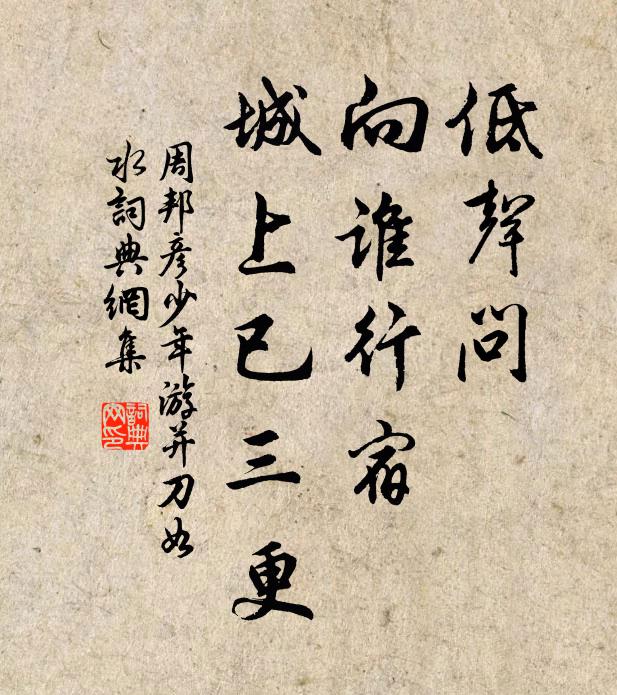 低聲問
向誰行宿
城上已三更
周邦彥少年游并刀如
水詞典網集
詞典
网印